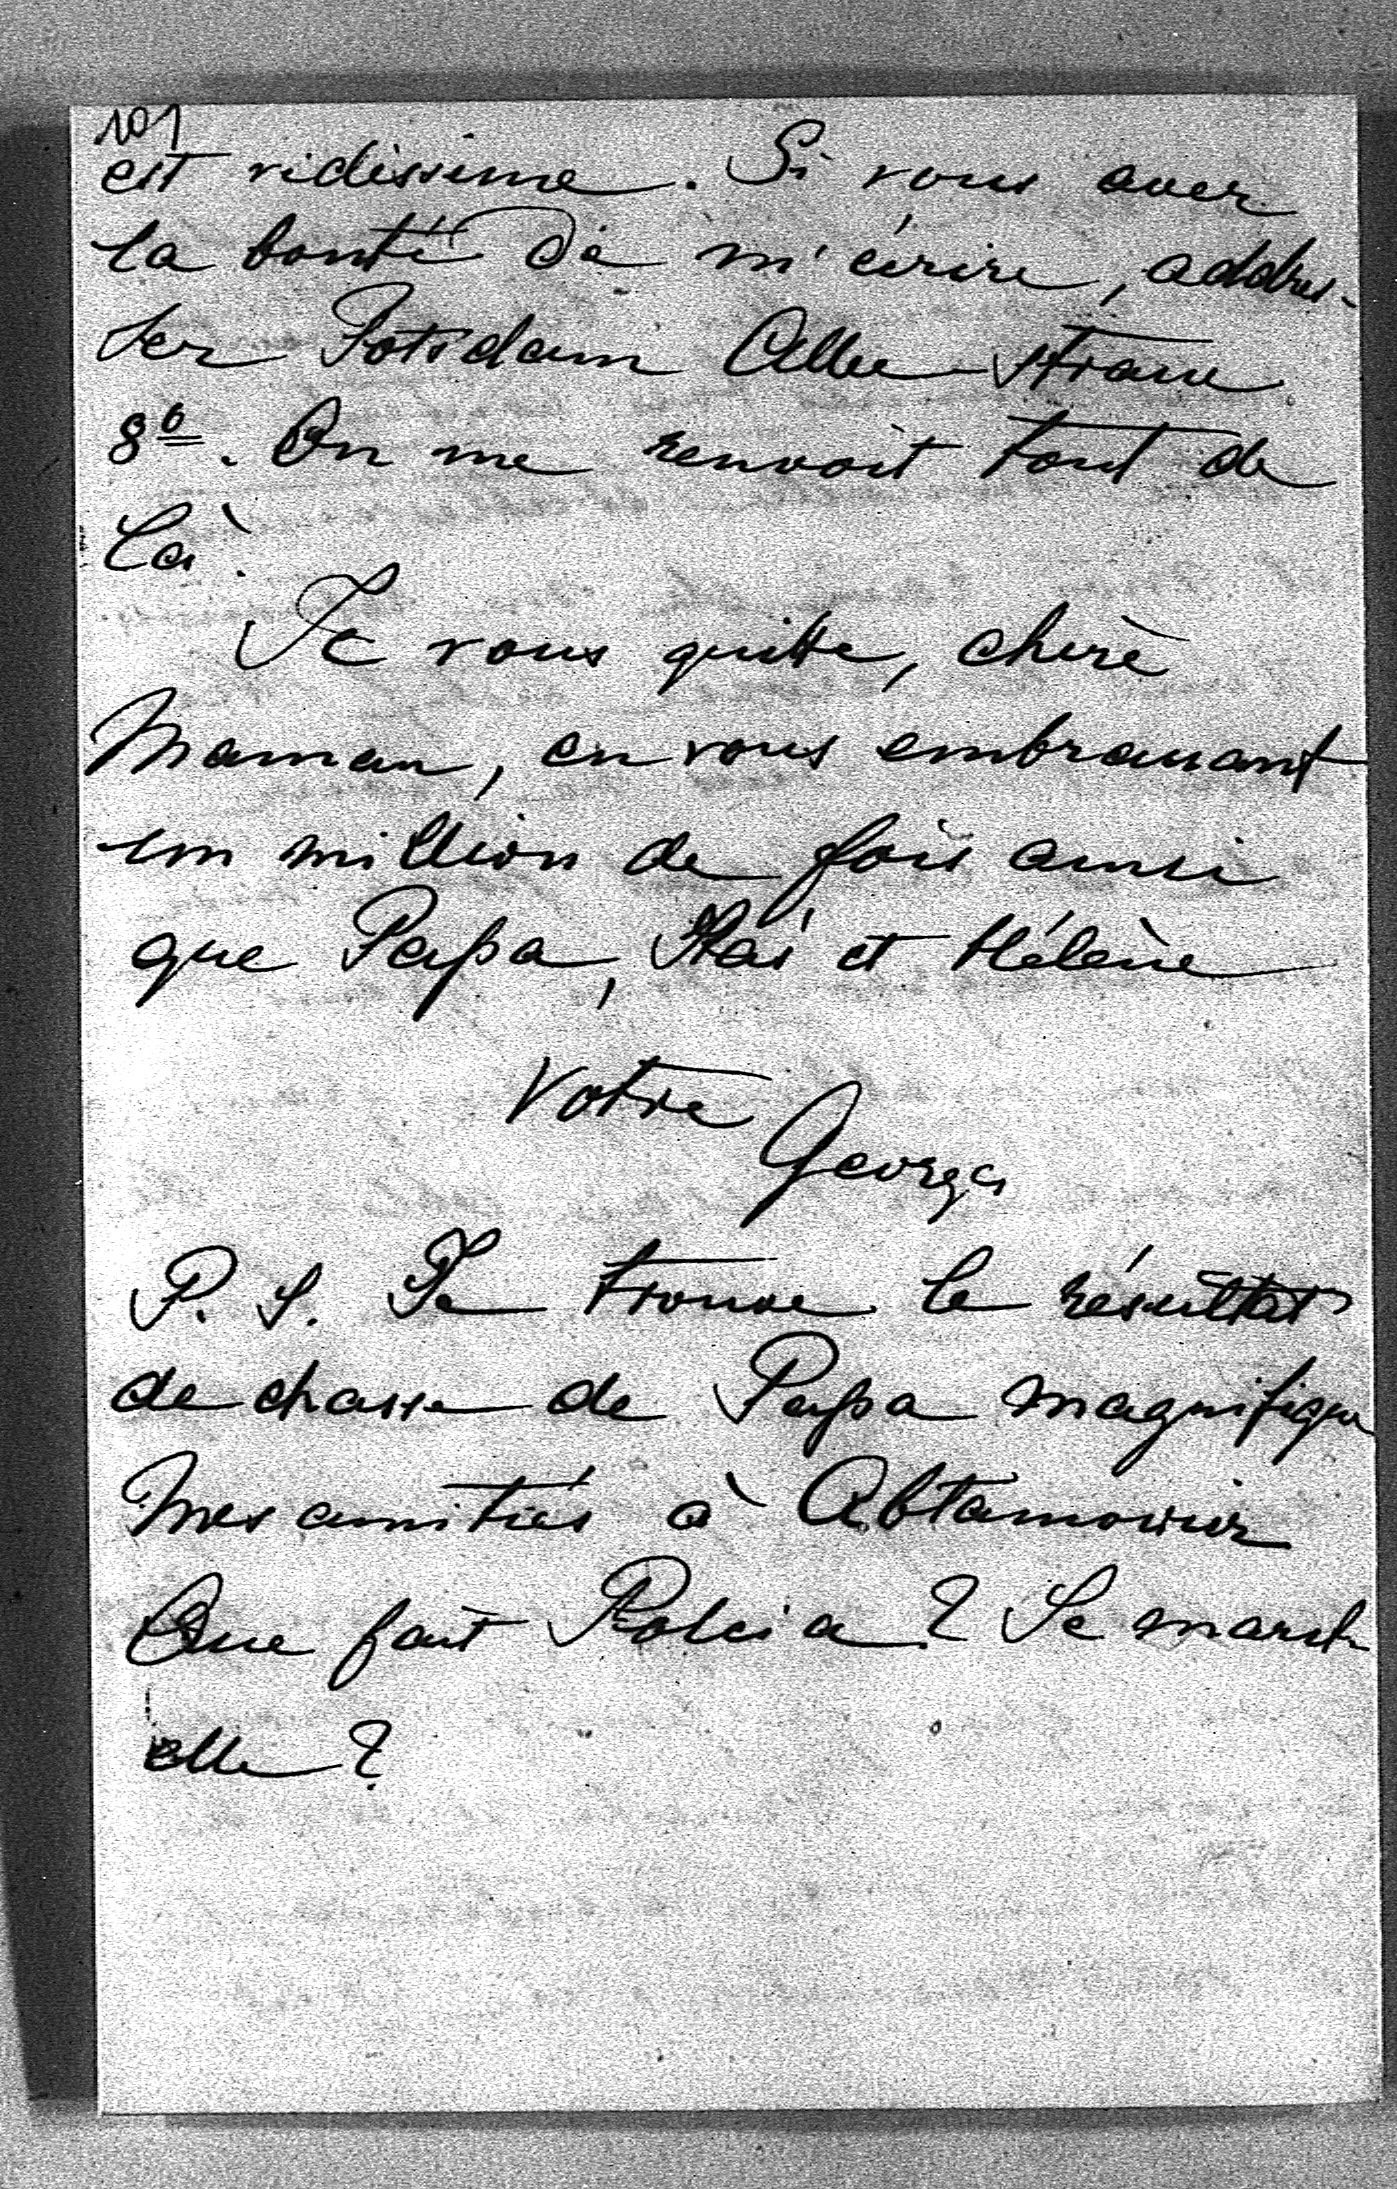 101
est vidissime. Si vous avez
la bonté de m'écrire, addres-
ser Potsdam Allee-strasse
8b. On me renvoit tout de
là.
Je vous quitte, chère
Maman, en vous embrassant
un million de fois ainsi
que Papa, et Hélène
Votre
Georges
P. S. Je trouve le résultat
de chasse de Papa magnifique
Mes amitiés à Abtamowicz
Que fait ? Se march
elle ?